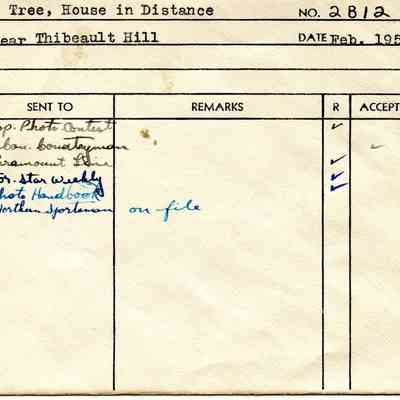 Tree, House in Distance NO. 2812
ear Thibeault Hill DATE Feb. 195
SENT TO REMARKS R ACCEPT
op. Photo Contest ✓
Countryman
aramount ✓
or. Star Weekly ✓
hoto Handbook ✓
Northern Sportsman on file